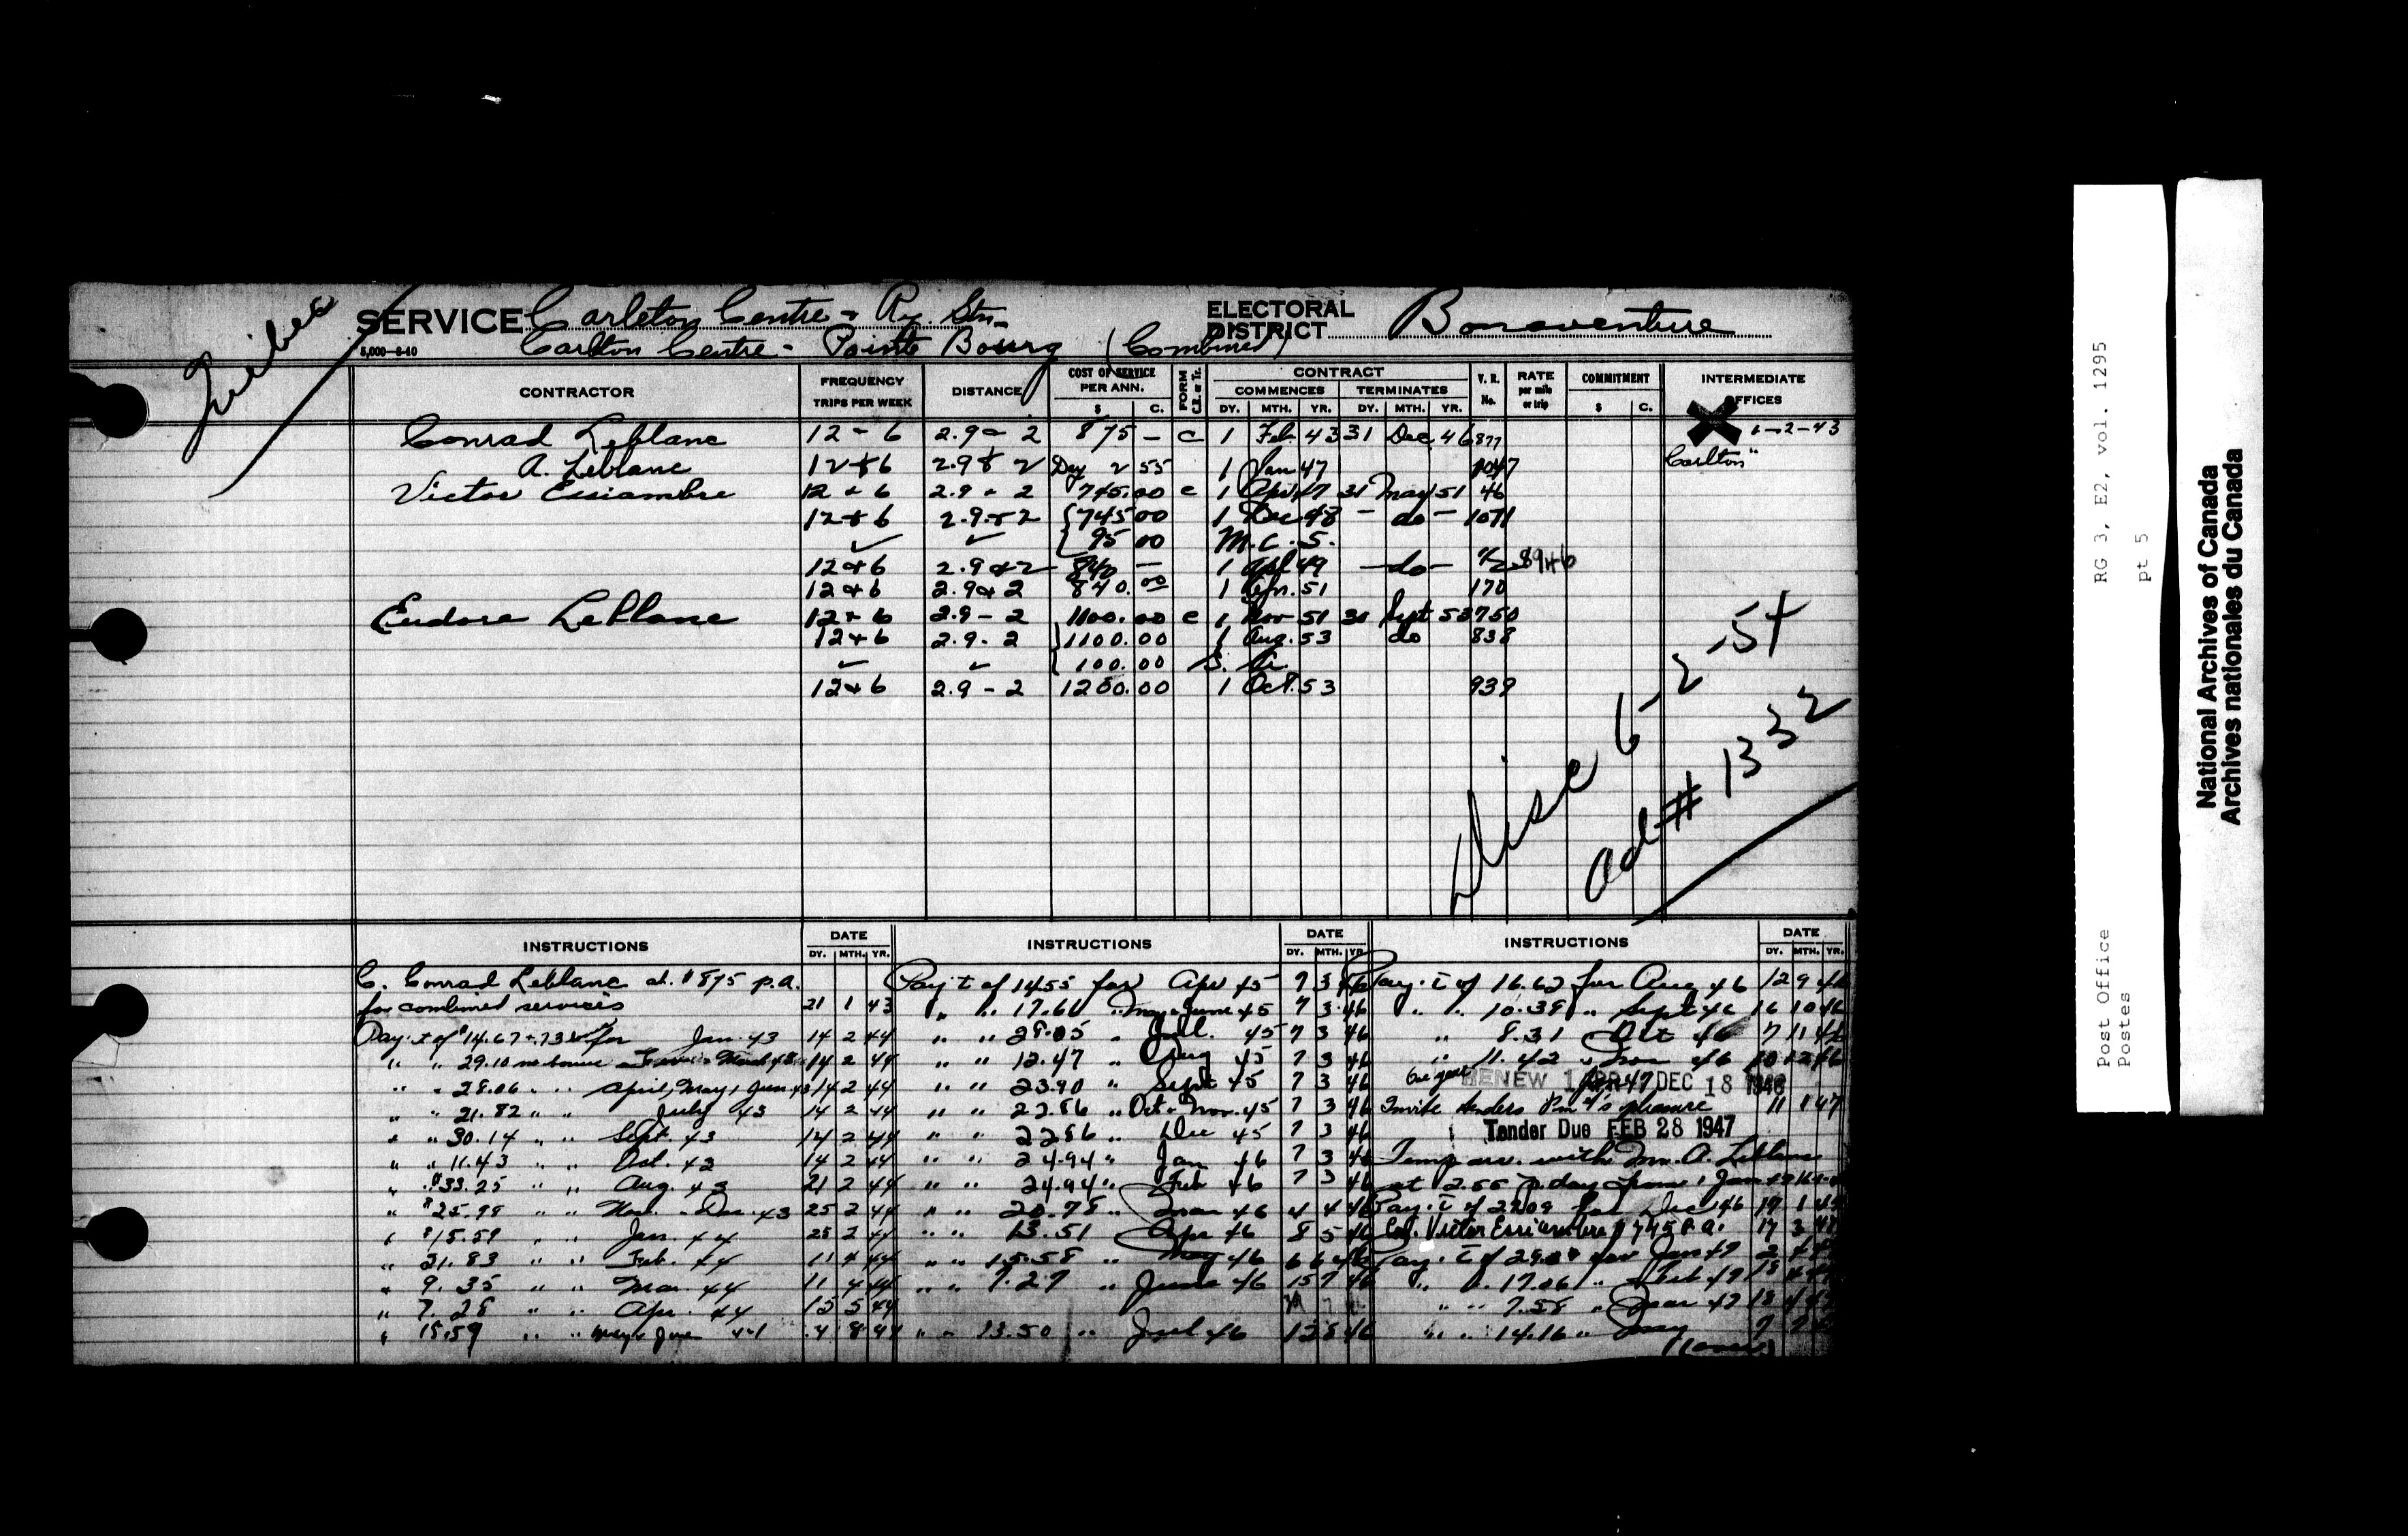 Quebec
SERVICE Carleton Centre - Ry. Stn.
5,000-6-40 Carlton Centre - Pointe Bourg (Combined)
ELECTORAL DISTRICT Bonaventure
CONTRACTOR FREQUENCY TRIPS PER WEEK DISTANCE COST OF SERVICE PER ANN. $ C. FORM C.R. or Tr. CONTRACT COMMENCES DY. MTH. YR. TERMINATES DY. MTH. YR. V. R. No. RATE per mile or trip COMMITMENT $ C. INTERMEDIATE OFFICES
Conrad Leblanc 12 - 6 2.9 - 2 875 - C 1 Feb. 43 31 Dec 46 877 1-2-43
A. Leblanc 12 & 6 2.9 & 2 Day 2 55 1 Jan 47 1047 Carlton"
Victor Essiambre 12 & 6 2.9 - 2 745.00 C 1 Apr 47 31 May 51 46
12 & 6 2.9 & 2 745 00 1 Dec 48 - do - 1071
✓ ✓ 95 00 M.C.S.
12 & 6 2.9 & 2 840 - 1 Apl 49 - do -
12 & 6 2.9 & 2 840.00 1 Apr. 51 170
Eudore LeBlanc 12 & 6 2.9 - 2 1100.00 C 1 Nov 51 30 Sept 53 750
12 & 6 2.9 - 2 1100.00 1 Aug. 53 do 838
✓ ✓ 100.00 S. A.
12 & 6 2.9 - 2 1200.00 1 Oct. 53 939
Disc 6-2-54
ad # 1332
INSTRUCTIONS DATE DY. MTH. YR.
C. Conrad Leblanc at $875 p.a.
for combined services 21 1 43
Pay. t of $14.67 + .73 for Jan. 43 14 2 44
" " 29.10 March 43 14 2 44
" " 28.06 " " April, May, Jun 43 14 2 44
" " 21.82 " " July 43 14 2 44
" " 30.14 " " Sept. 43 14 2 44
" " 11.43 " " Oct. 43 14 2 44
" $33.25 " " Aug. 43 21 2 44
" $25.98 " " Nov. - Dec. 43 25 2 44
" $15.59 " " Jan. 44 25 2 44
" 21.83 " " Feb. 44 11 4 44
" 9.35 " " Mar. 44 11 4 44
" 7.28 " " Apr. 44 15 5 44
" 15.59 " " May & June 44 4 8 44
INSTRUCTIONS DATE DY. MTH. YR.
Pay t of 14.55 for Apr 45 7 3 46
" " 17.66 " May & June 45 7 3 46
" " 28.05 " Jul. 45 7 3 46
" " 12.47 " Aug 45 7 3 46
" " 23.90 " Sept 45 7 3 46
" " 22.86 " Oct & Nov. 45 7 3 46
" " 22.86 " Dec 45 7 3 46
" " 24.94 " Jan 46 7 3 46
" " 24.94 " Feb 46 7 3 46
" " 20.78 " Mar 46 4 4 46
" " 13.51 " Apr 46 8 5 46
" " 15.58 " May 46 6 6 46
" " 7.27 " June 46 15 7 46
" " 13.50 " Jul 46 12 8 46
INSTRUCTIONS DATE DY. MTH. YR.
Pay. t of 16.62 for Aug 46 12 9 46
" " 10.39 " Sept 46 16 10 46
" 8.31 Oct 46 7 11 46
" 11.42 " Nov 46 10 12 46
One year RENEW 1 APR 47 DEC 18 1946
Invite tenders Pm G's pleasure 11 1 47
Tender Due FEB 28 1947
Temp arr. with Wm. A. Leblanc
at 2.55 p. day from 1 Jan
Pay. t of 29.09 for Dec 46 19 1
Victor Essiambre $745 P.A. 17 3
Pay. t of for Jan 47 2
" " 17.06 " Feb 47 18
" " 7.58 " Mar 47 18
" " 14.16 " May 9
(over)
Post Office RG 3, E2, vol. 1295
Postes pt 5
National Archives of Canada
Archives nationales du Canada